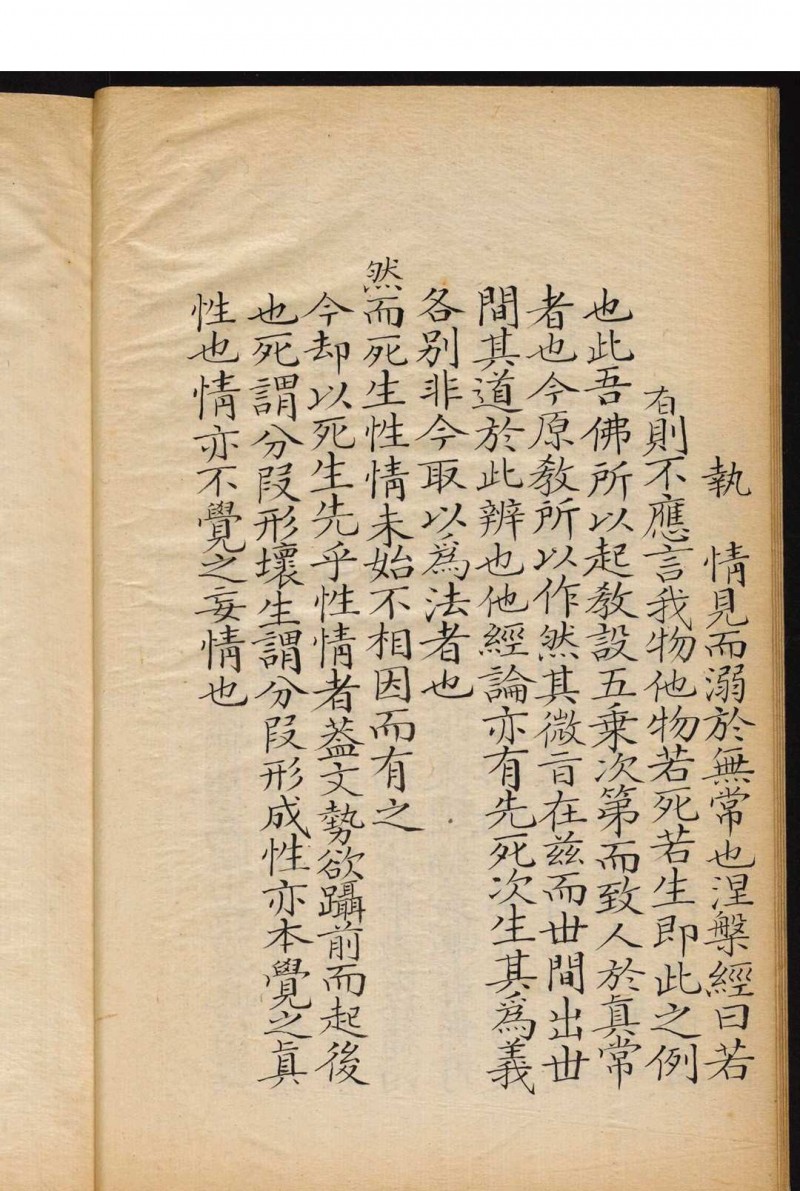 執　情見而溺於無常也涅槃經曰若
有則不應言我物他物若死若生即此之例
也此吾佛所以起教設五乗次第而致人於真常
者也今原教所以作然其微旨在兹而丗間出丗
間其道於此辨也他經論亦有先死次生其為義
各别非今取以為法者也
然而死生性情未始不相因而有之
今却以死生先乎性情者葢文勢欲躡前而起後
也死謂分段形壊生謂分段形成性亦本覺之真
性也情亦不覺之妄情也